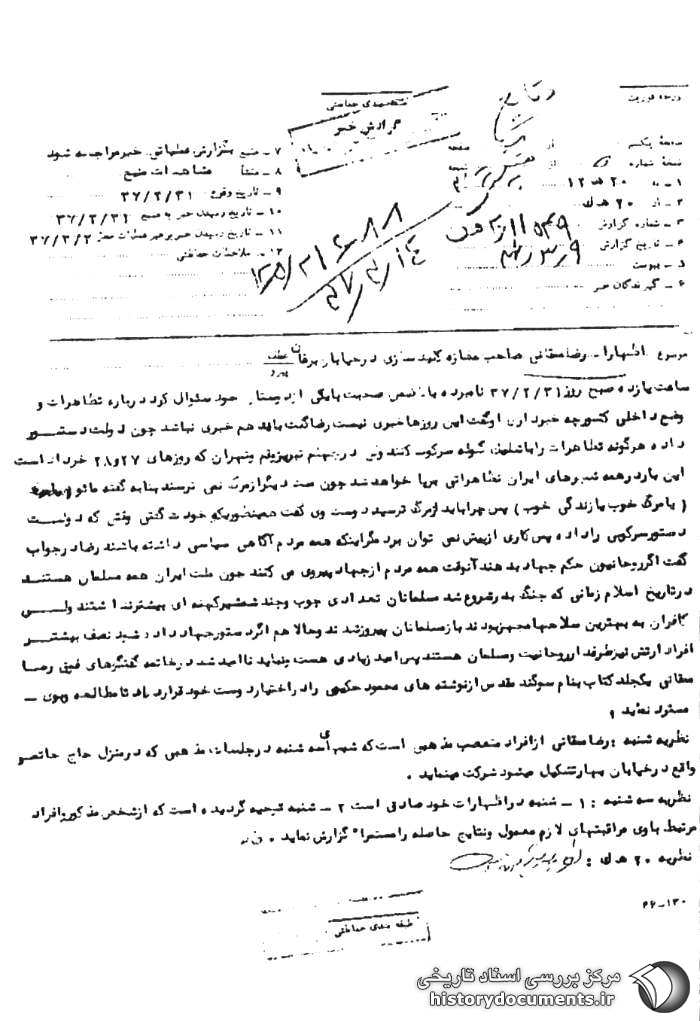 درجه فوریت
طبقه‌بندی حفاظتی
گزارش خبر
وقایع
صفحه یکم از صفحه
نسخه شماره از نسخه
۱ - به ۲۰ هـ ۱۲
۲ - از ۲۰ هـ ك
۳ - شماره گزارش
۴ - تاریخ گزارش
۵ - پیوست
۶ - گیرندگان خبر
۷ - منبع بگزارش عملیاتی خبر مراجعه شود
۸ - منشأ مشاهدات منبع
۹ - تاریخ وقوع ۳۷/۲/۳۱
۱۰ - تاریخ رسیدن خبر به منبع ۳۷/۲/۳۱
۱۱ - تاریخ رسیدن خبر برهبر عملیات ۳۷/۳/۲
۱۲ - ملاحظات حفاظتی
موضوع اظهارات رضا مقانی صاحب مغازه کلید سازی در خیابان عطف پیرو
ساعت یازده صبح روز ۳۷/۲/۳۱ نامبرده بالا ضمن صحبت با یکی از دوستان خود سئوال کرد درباره تظاهرات و
وضع داخلی کشور چه خبر داری او گفت این روزها خبری نیست رضا گفت باید هم خبری نباشد چون دولت دستور
داده هرگونه تظاهرات را با شلیک گلوله سرکوب کنند ولی در جهنم تبریز و قم و تهران که روزهای ۲۷ و ۲۸ خرداد است
این بار در همه شهرهای ایران تظاهراتی برپا خواهد شد چون ملت دیگر از مرگ نمی ترسند بنا به گفته مائو
( یا مرگ خوب یا زندگی خوب ) پس چرا باید از مرگ ترسید دوست وی گفت همینطوریکه خودت گفتی وقتی که دولت
دستور سرکوبی را داده پس کاری از پیش نمی توان برد مگر اینکه همه مردم آگاهی سیاسی داشته باشند رضا در جواب
گفت اگر روحانیون حکم جهاد بدهند آنوقت همه مردم از جهاد پیروی می کنند چون ملت ایران همه مسلمان هستند
در تاریخ اسلام زمانی که جنگ بدر شروع شد مسلمانان تعدادی چوب و چند شمشیر کهنه ای بیشتر نداشتند ولی
کافران به بهترین سلاحها مجهز بودند باز مسلمانان پیروز شدند و حالا هم اگر دستور جهاد داده شود نصف بیشتر
افراد ارتش نیز طرفدار روحانیت و مسلمان هستند پس امید زیادی هست و نباید ناامید شد در خاتمه گفتگوهای فوق رضا
مقانی یکجلد کتاب بنام سوگند مقدس از نوشته های محمود حکیمی را در اختیار دوست خود قرار داد تا مطالعه و بوی -
مسترد نماید .
نظریه شنبه : رضا مقانی از افراد متعصب مذهبی است که شبهای سه شنبه در جلسات مذهبی که در منزل حاج
واقع در خیابان بهار تشکیل میشود شرکت مینماید .
نظریه سه شنبه : ۱ - شنبه در اظهارات خود صادق است ۲ - شنبه توجیه گردیده است که از شخص مذکور و افراد
مرتبط با وی مراقبتهای لازم معمول و نتایج حاصله را مستمرا" گزارش نماید .
نظریه ۲۰ هـ ك :
۴۶-۱۳۰
طبقه بندی حفاظتی
مرکز بررسی اسناد تاریخی
historydocuments.ir